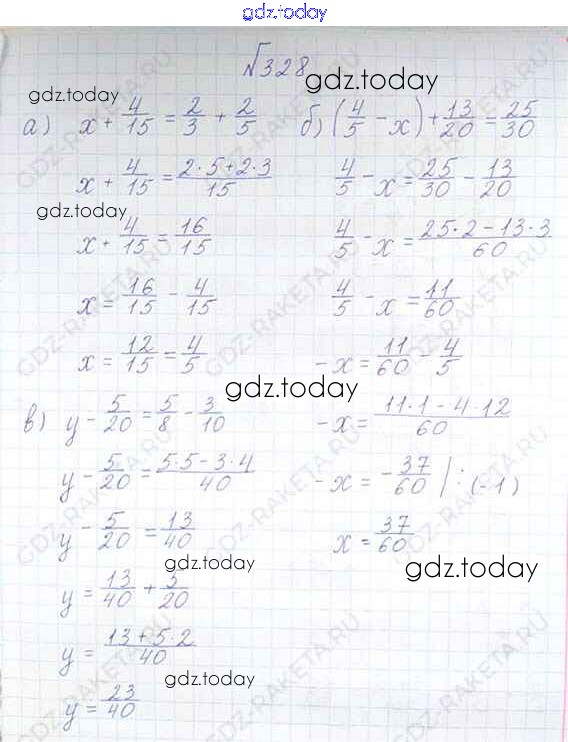 gdz.today
№328
gdz.today
gdz.today
а) x + 4/15 = 2/3 + 2/5
x + 4/15 = (2·5+2·3)/15
gdz.today
x + 4/15 = 16/15
x = 16/15 - 4/15
x = 12/15 = 4/5
б) (4/5 - x) + 13/20 = 25/30
4/5 - x = 25/30 - 13/20
4/5 - x = (25·2-13·3)/60
4/5 - x = 11/60
-x = 11/60 - 4/5
-x = (11·1-4·12)/60
-x = -37/60 | : (-1)
x = 37/60
gdz.today
gdz.today
в) y - 5/20 = 5/8 - 3/10
y - 5/20 = (5·5-3·4)/40
y - 5/20 = 13/40
gdz.today
y = 13/40 + 5/20
y = (13+5·2)/40
gdz.today
y = 23/40
GDZ-RAKETA.RU